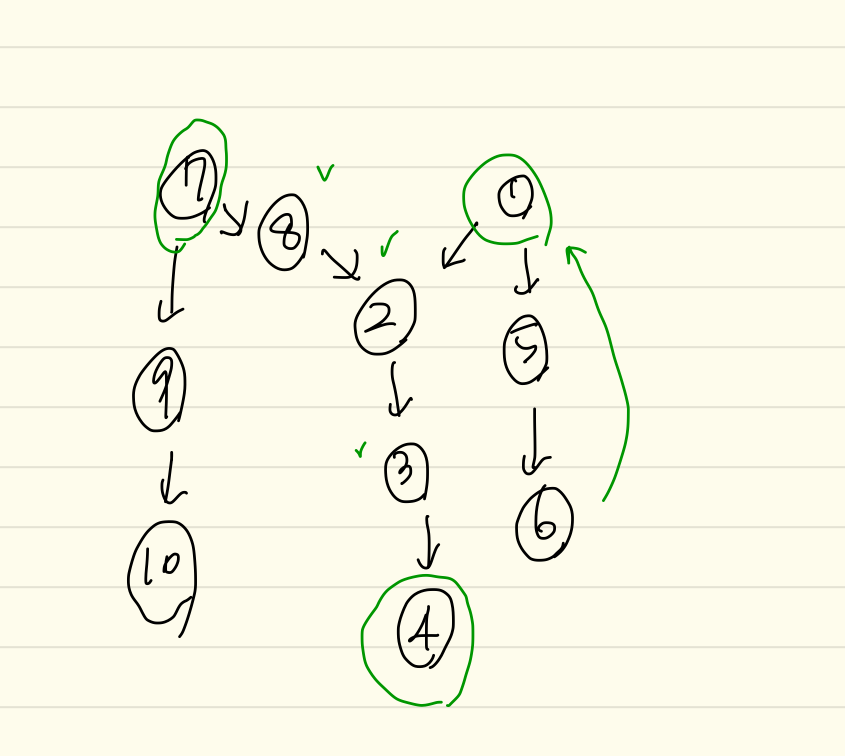 7
1
8
2
5
9
3
6
10
4